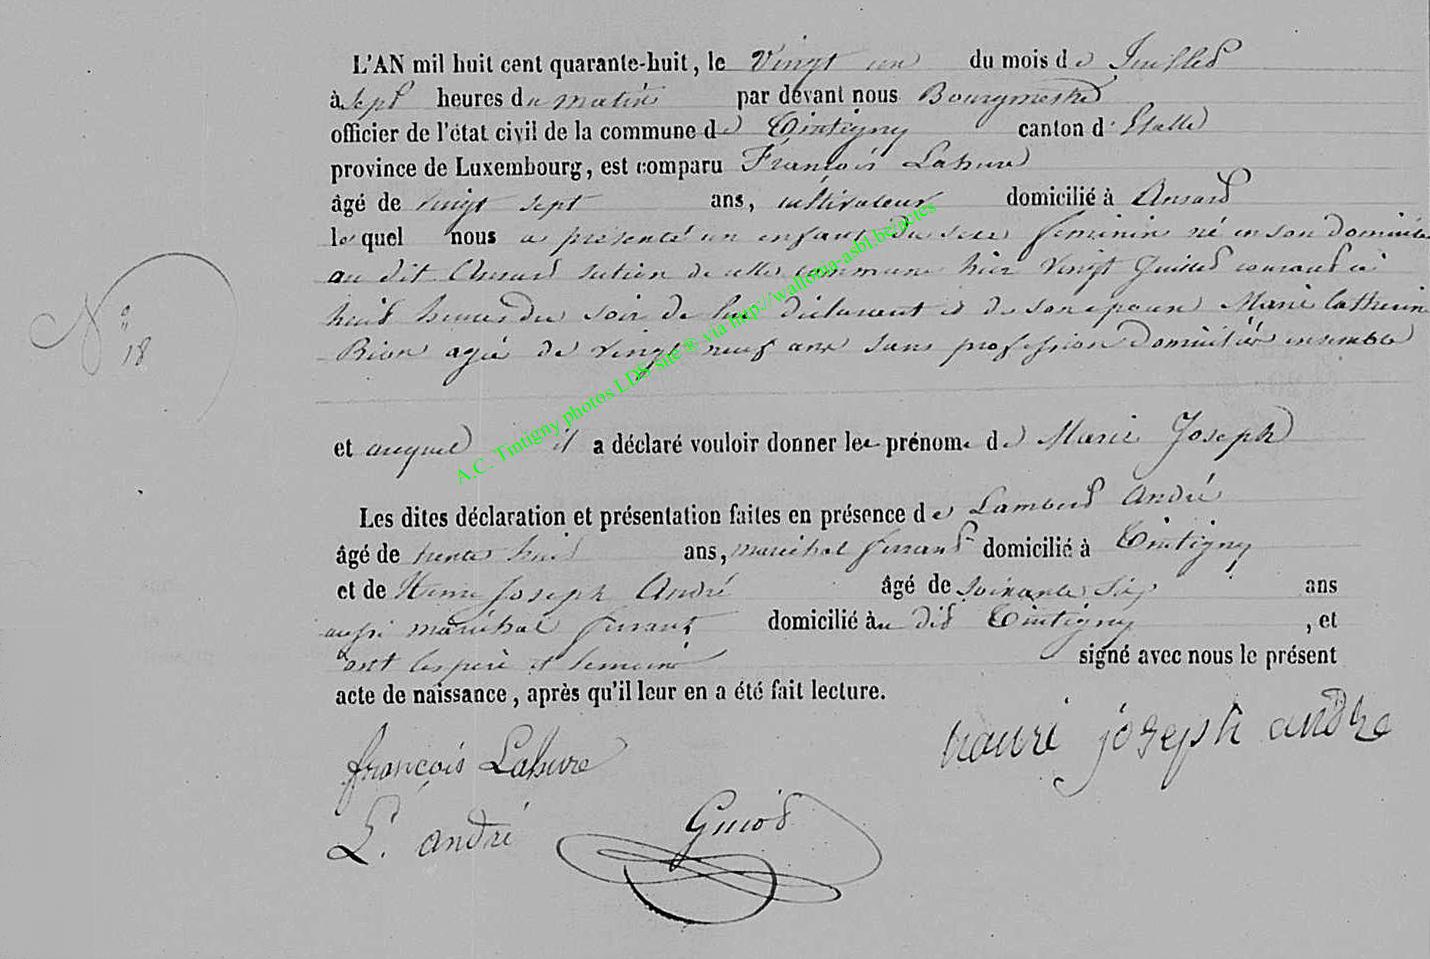 L'AN mil huit cent quarante-huit, le Vingt un du mois de Juillet
à sept heures du matin par devant nous Bourgmestre
officier de l'état civil de la commune de Tintigny canton d'Etalle
province de Luxembourg, est comparu François Lahure
âgé de vingt sept ans, cultivateur domicilié à Ansart
lequel nous a présenté un enfant du sexe féminin né en son domicile
au dit Ansart section de cette commune hier vingt Juillet courant à
huit heures du soir de lui déclarant et de son epouse Marie Catherine
Bion agée de vingt neuf ans sans profession domiciliés ensemble
N° 18
et auquel il a déclaré vouloir donner les prénoms de Marie Joseph
Les dites déclaration et présentation faites en présence de Lambert André
âgé de trente huit ans, maréchal ferrant domicilié à Tintigny
et de Henri Joseph André âgé de soixante six ans
aussi maréchal ferrant domicilié au dit Tintigny, et
ont les père et témoins signé avec nous le présent
acte de naissance, après qu'il leur en a été fait lecture.
françois Lahure
hanri joseph andre
L. andré
Guiot
A.C. Tintigny photos LDS site ® via http://wallonia-asbl.be/actes